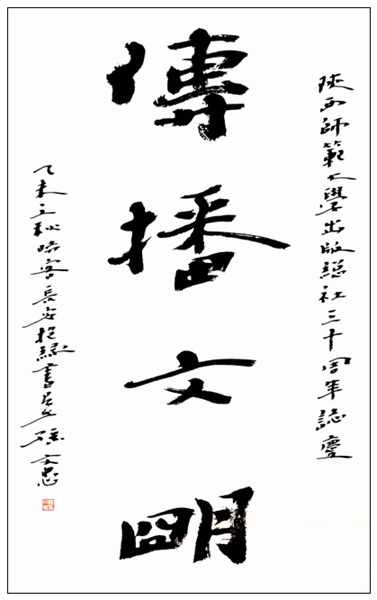 陝西師範大學出版總社三十周年誌慶
傳播文朙
乙未立秋時客長安書屋文忠